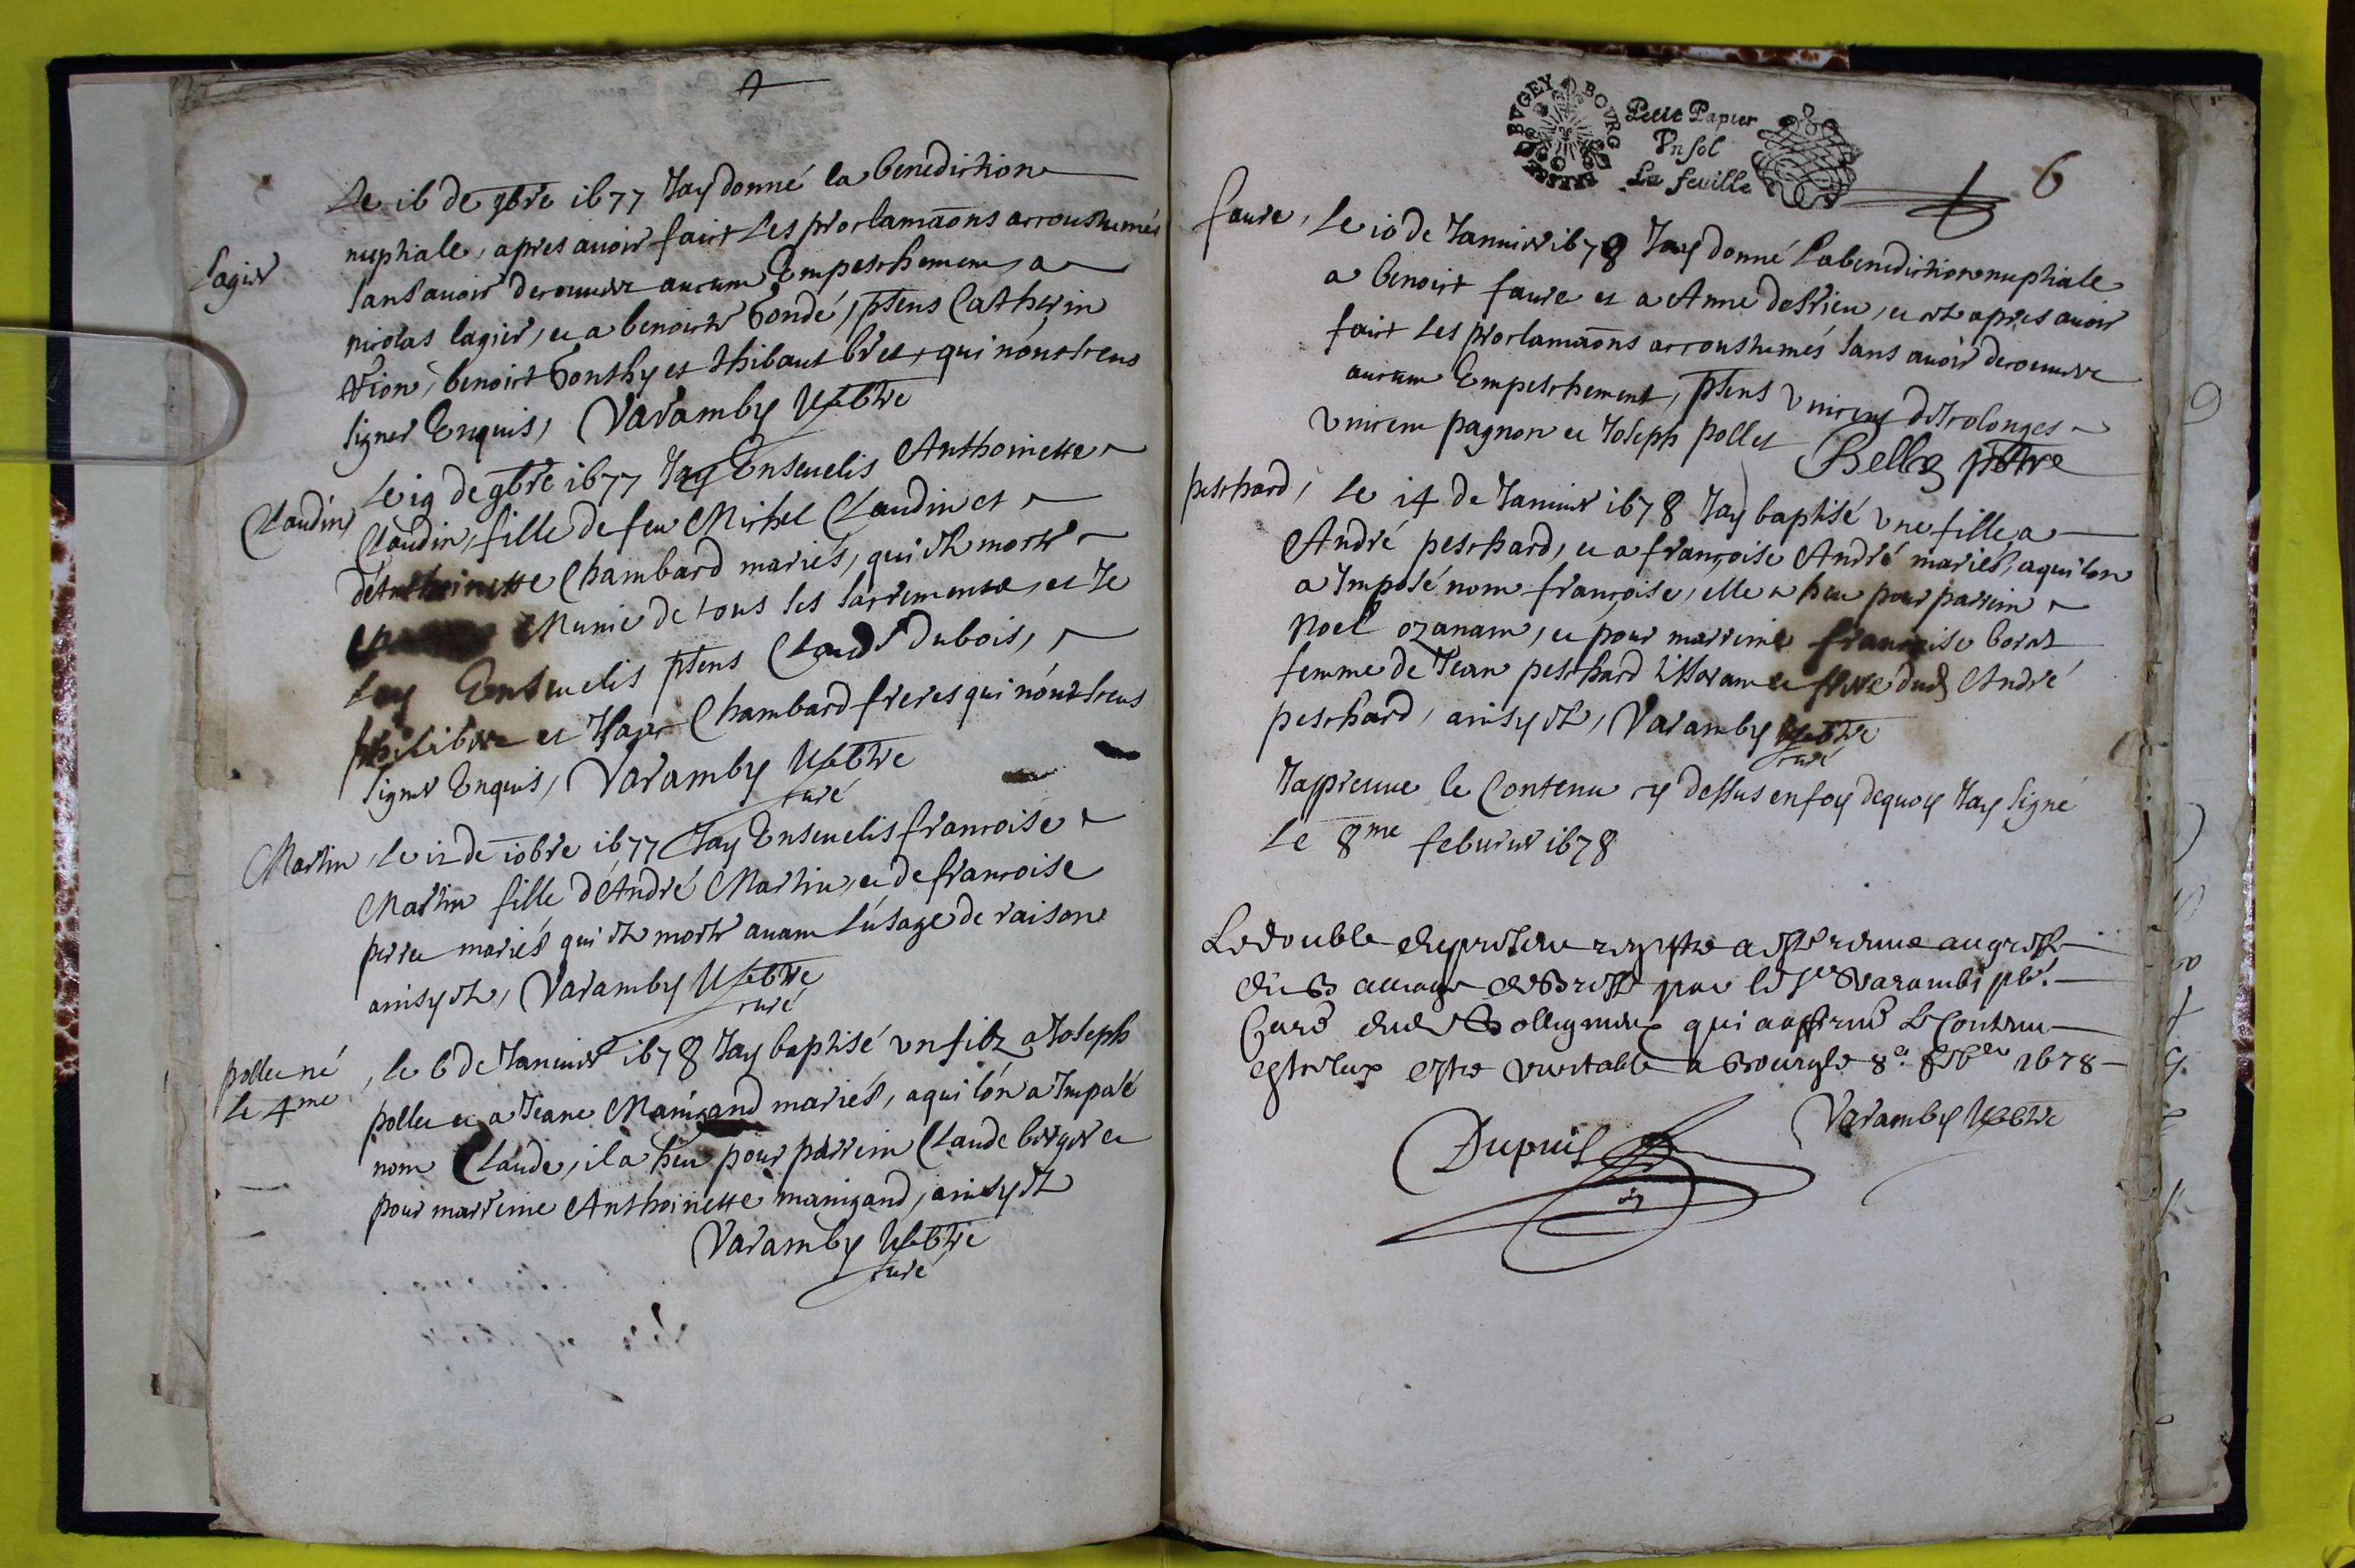 Le 16 de 9bre 1677 Jay donné la benediction
nuptiale, apres avoir faict les proclamaons accoustumés
Lagier
sans avoir decouvert aucun Empeschement, a
nicolas lagier, et a benoiste Gondé, pnts Catherin
Vion, benoict Gonthy et thibaut bret, qui n'ont sceus
signer Enquis, Varamby pbtre
Claudin
Le 19 de 9bre 1677 Jay Ensevelis Anthoinette
Claudin, fille de feu Michel Claudin et
d'Anthoinette Chambard mariés, qui est morte
Munie de tous les sacrements, et Je
lay Ensevelis pnts Claude Dubois,
philibert et Chambard freres qui n'ont sceus
signer Enquis, Varamby pbtre
curé
Martin, le 12 de 10bre 1677 Jay Ensevelis francoise
Martin fille d'André Martin, et de francoise
perret mariés qui est morte avant l'usage de raison
ainsy est, Varamby pbtre
curé
pollet né
le 4me
le 6 de Janvier 1678 Jay baptisé un filz a Joseph
pollet et a Jeane Manigand mariés, a qui l'on a Imposé
nom Claude, il a heu pour parrein Claude berger et
pour marreine Anthoinette manigand, ainsy est
Varamby pbtre
curé
BVGEY BOVRG BRESSE
Petit Papier
Vn sol
La feuille
6
faure, Le 10 de Janvier 1678 Jay donné la benediction nuptiale
a benoict faure et a Anne desrieu, et ce apres avoir
faict les proclamaons accoustumés sans avoir decouvert
aucun Empeschement, pnts Vincent descolonges
Vincent pagnon et Joseph pollet Bellez pbtre
peschard, Le 14 de Janvier 1678 Jay baptisé une fille a
André peschard, et a françoise André mariés, a qui lon
a Imposé nom françoise, elle a heu pour parrein
Noel ozanam, et pour marreine francoise borat
femme de Jean peschard et frere dud André
peschard, ainsy est, Varamby pbtre
curé
Japreuve le Contenu cy dessus en foy dequoy Jay signé
Le 8me febvrier 1678
Le double du present registre a esté remis au greffe
du Bailliage de Bresse par le Sr Varambi pbre
Curé dud qui a affirmé le Contenu
estre veritable a Bourg le 8e 1678
Dupuis Varamby pbtre